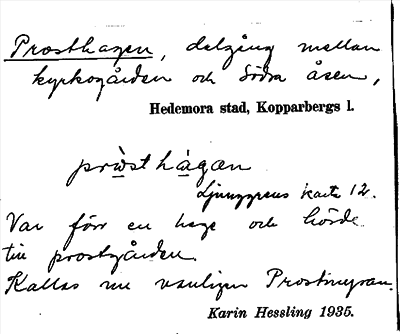 Prosthagen, delgång mellan
kyrkogården och Södra åsen,
Hedemora stad, Kopparbergs l.
pròsthàgan
Ljunggrens karta 12.
Var förr en hage och hörde
till prostgården.
Kallas nu vanligen Prostmyran.
Karin Hessling 1935.